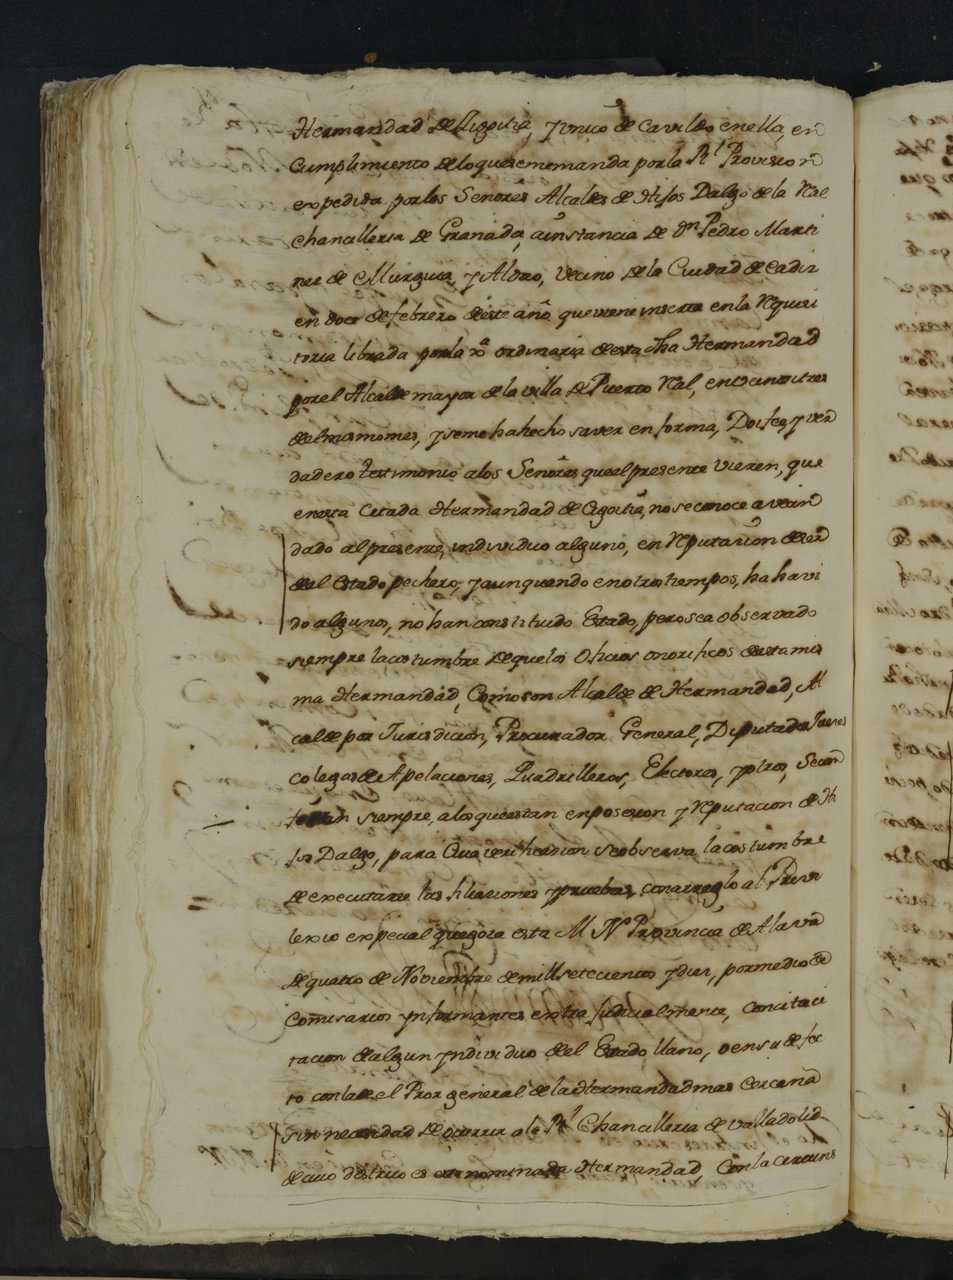 Hermandad de Zigoitia, y unico de Cavildo en ella, en
Cumplimiento de lo que se me manda por la Rl Provision
expedida por los Señores Alcaldes de Hijos Dalgo de la Real
Chancilleria de Granada, a instancia de Dn Pedro Marti
nez de Murguia, y Aldro, Vecino de la Ciudad de Cadiz
en doce de febrero de este año que viene inserta en la Requisi
toria librada por la ordinaria de esta dha Hermandad
por el Alcalde mayor de la villa de Puerto Real, en veinte y tres
del mismo mes, y se me ha hecho saver en forma, Doi fee, y ver
dadero testimonio a los Señores que el presente vieren, que
en esta Citada Hermandad de Cigoitia, no se conoce avecin
dado al presente, individuo alguno, en Reputacion de ser
del Estado pechero, y aunque en otros tiempos, ha havi
do algunos, no han constituido Estado, pero sea observado
siempre la costumbre de que los Oficios onorificos de esta mis
ma Hermandad, Como son Alcalde de Hermandad, Al
calde por Jurisdicion, Procurador General, Diputado
colegas de Apelaciones, Quadrilleros, Electores, y otros, se con
siempre, a los que estan en posesion y Reputacion de Hi
jos Dalgo, para Cuia se observa la costumbre
de executarse las filiaciones y pruebas, con arreglo al Privi
lexio expecial que goza esta M. N. Provincia de Alava
de quatro de Noviembre de mill setecientos y diez, por medio de
Comisarios ynformantes extra judicialmente, con citaci
tacion de algun yndividuo del Estado llano, o en su defec
to con la de el Pror general de la Hermandad mas Cercana
sin necesidad de ocurrir a la Rl Chancilleria de Valladolid
de cuio distrito es esta nominada Hermandad, Con la circuns